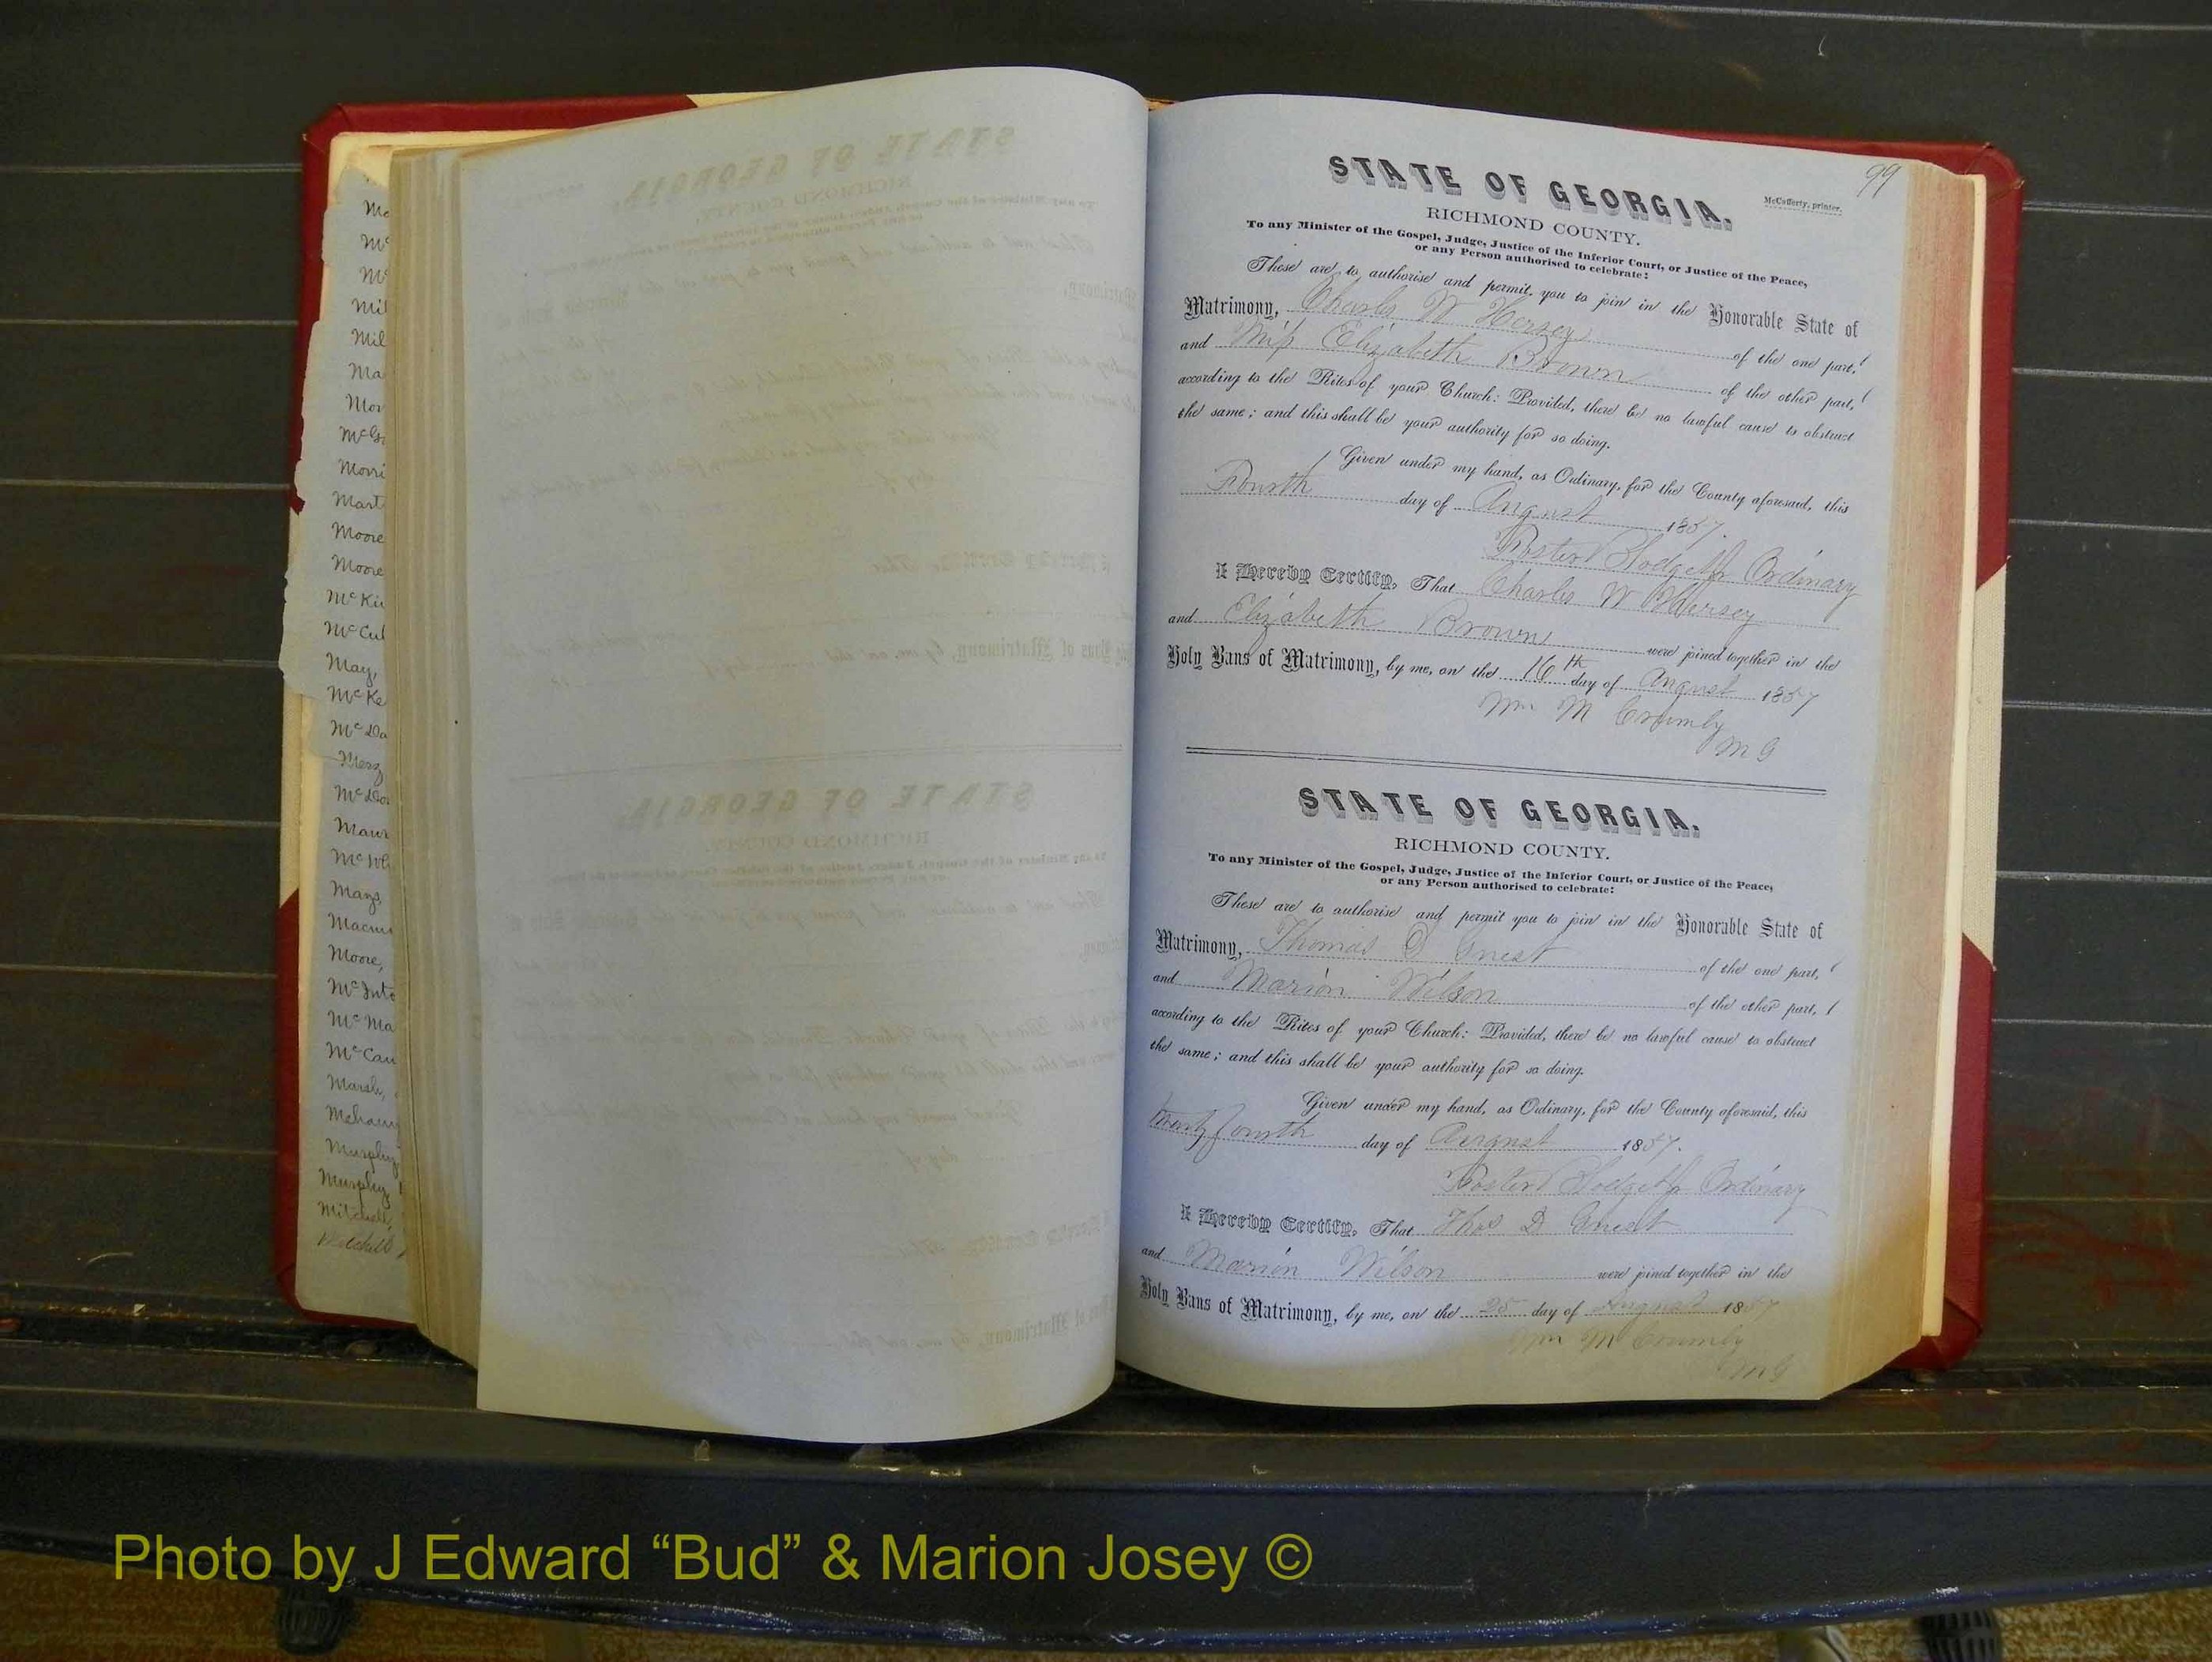 Mc
Mc
Mc
Mil
Mil
Ma
Mor
McGr
Morri
Mart
Moore
Moore
McKi
McCul
May,
McKe
McDa
McDo
Maur
McWh
Mays,
Moore,
McInt
McMa
McCan
Marsh,
Murphy
Murphy,
Mitchell,
Mitchell
99
STATE OF GEORGIA.
McCafferty, printer.
RICHMOND COUNTY.
To any Minister of the Gospel, Judge, Justice of the Inferior Court, or Justice of the Peace,
or any Person authorised to celebrate:
These are to authorise and permit you to join in the Honorable State of
Matrimony, Charles W Hersey of the one part,
and Miss Elizabeth Brown of the other part,
according to the Rites of your Church: Provided, there be no lawful cause to obstruct
the same; and this shall be your authority for so doing.
Given under my hand, as Ordinary, for the County aforesaid, this
Fourth day of August 1857.
Foster Blodget Jr Ordinary
I Hereby Certify, That Charles W Hersey
and Elizabeth Brown were joined together in the
Holy Bans of Matrimony, by me, on the 16th day of August 1857
Wm M Crumly
M G
STATE OF GEORGIA.
RICHMOND COUNTY.
To any Minister of the Gospel, Judge, Justice of the Inferior Court, or Justice of the Peace,
or any Person authorised to celebrate:
These are to authorise and permit you to join in the Honorable State of
Matrimony, Thomas D of the one part,
and Marion Wilson of the other part,
according to the Rites of your Church: Provided, there be no lawful cause to obstruct
the same; and this shall be your authority for so doing.
Given under my hand, as Ordinary, for the County aforesaid, this
Twenty fourth day of August 1857.
Foster Blodget Jr Ordinary
I Hereby Certify, That Thos D
and Marion Wilson were joined together in the
Holy Bans of Matrimony, by me, on the 25 day of August 1857
Wm M Crumly
M G
Photo by J Edward “Bud” & Marion Josey ©